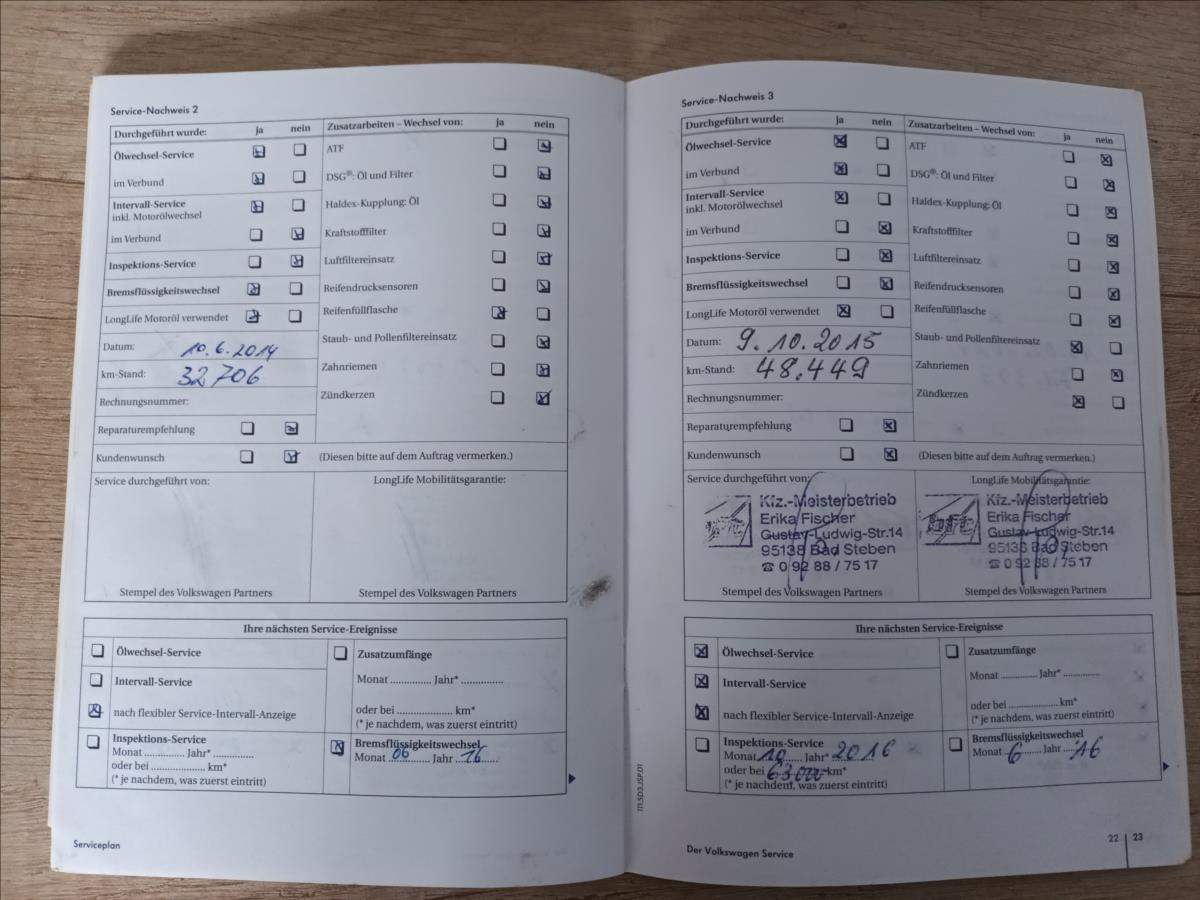 Service-Nachweis 2
Durchgeführt wurde: ja nein Zusatzarbeiten – Wechsel von: ja nein
Ölwechsel-Service ATF
im Verbund DSG®: Öl und Filter
Intervall-Service
inkl. Motorölwechsel Haldex-Kupplung: Öl
im Verbund Kraftstofffilter
Inspektions-Service Luftfiltereinsatz
Bremsflüssigkeitswechsel Reifendrucksensoren
LongLife Motoröl verwendet Reifenfüllflasche
Datum: 10.6.2014 Staub- und Pollenfiltereinsatz
km-Stand: 32706 Zahnriemen
Rechnungsnummer: Zündkerzen
Reparaturempfehlung
Kundenwunsch (Diesen bitte auf dem Auftrag vermerken.)
Service durchgeführt von: LongLife Mobilitätsgarantie:
Stempel des Volkswagen Partners Stempel des Volkswagen Partners
Ihre nächsten Service-Ereignisse
Ölwechsel-Service Zusatzumfänge
Intervall-Service Monat .............. Jahr* ..............
nach flexibler Service-Intervall-Anzeige oder bei .................... km*
(* je nachdem, was zuerst eintritt)
Inspektions-Service Bremsflüssigkeitswechsel
Monat ............. Jahr* ............. Monat 06 Jahr 16
oder bei .................... km*
(* je nachdem, was zuerst eintritt)
Serviceplan
Service-Nachweis 3
Durchgeführt wurde: ja nein Zusatzarbeiten – Wechsel von: ja nein
Ölwechsel-Service ATF
im Verbund DSG®: Öl und Filter
Intervall-Service
inkl. Motorölwechsel Haldex-Kupplung: Öl
im Verbund Kraftstofffilter
Inspektions-Service Luftfiltereinsatz
Bremsflüssigkeitswechsel Reifendrucksensoren
LongLife Motoröl verwendet Reifenfüllflasche
Datum: 9.10.2015 Staub- und Pollenfiltereinsatz
km-Stand: 48.449 Zahnriemen
Rechnungsnummer: Zündkerzen
Reparaturempfehlung
Kundenwunsch (Diesen bitte auf dem Auftrag vermerken.)
Service durchgeführt von: LongLife Mobilitätsgarantie:
Kfz.-Meisterbetrieb Kfz.-Meisterbetrieb
Erika Fischer Erika Fischer
Gustav-Ludwig-Str.14 Gustav-Ludwig-Str.14
95138 Bad Steben 95138 Bad Steben
☎ 0 92 88 / 75 17 ☎ 0 92 88 / 75 17
Stempel des Volkswagen Partners Stempel des Volkswagen Partners
Ihre nächsten Service-Ereignisse
Ölwechsel-Service Zusatzumfänge
Intervall-Service Monat .............. Jahr* ..............
nach flexibler Service-Intervall-Anzeige oder bei .................... km*
(* je nachdem, was zuerst eintritt)
Inspektions-Service Bremsflüssigkeitswechsel
Monat 10 Jahr* 2016 Monat 6 Jahr 16
oder bei km*
(* je nachdem, was zuerst eintritt)
111.5D3.JSP.01
Der Volkswagen Service
22 | 23